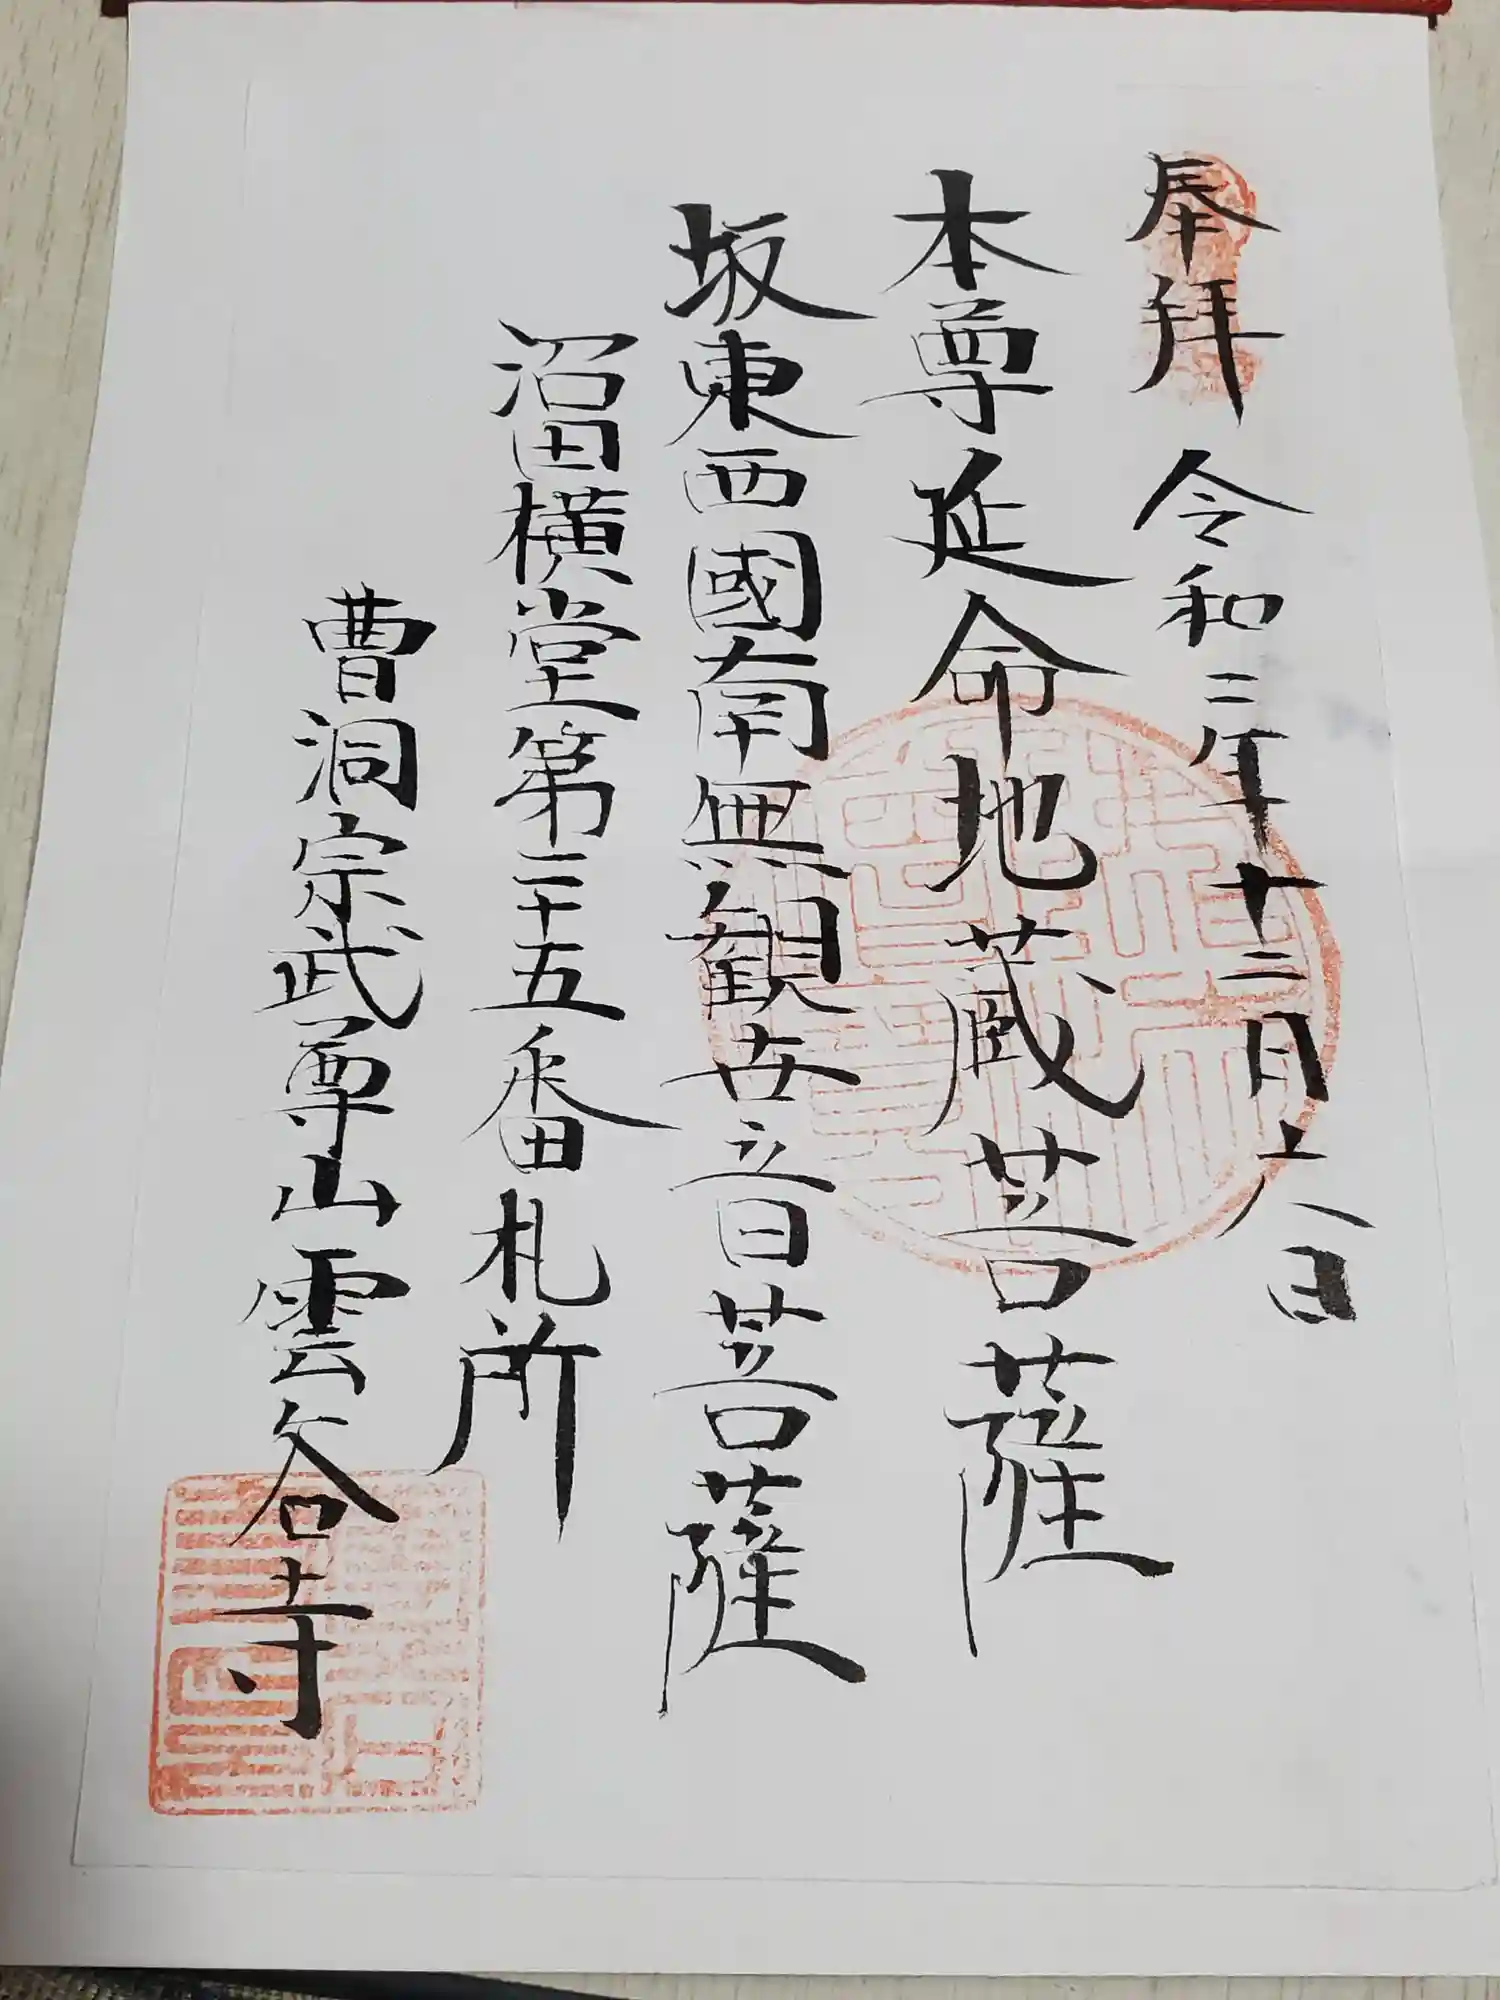 奉拜 令和二年十二月六日
本尊延命地蔵菩薩
坂東西國南無観世音菩薩
沼田横堂第二十五番札所
曹洞宗武尊山雲谷寺